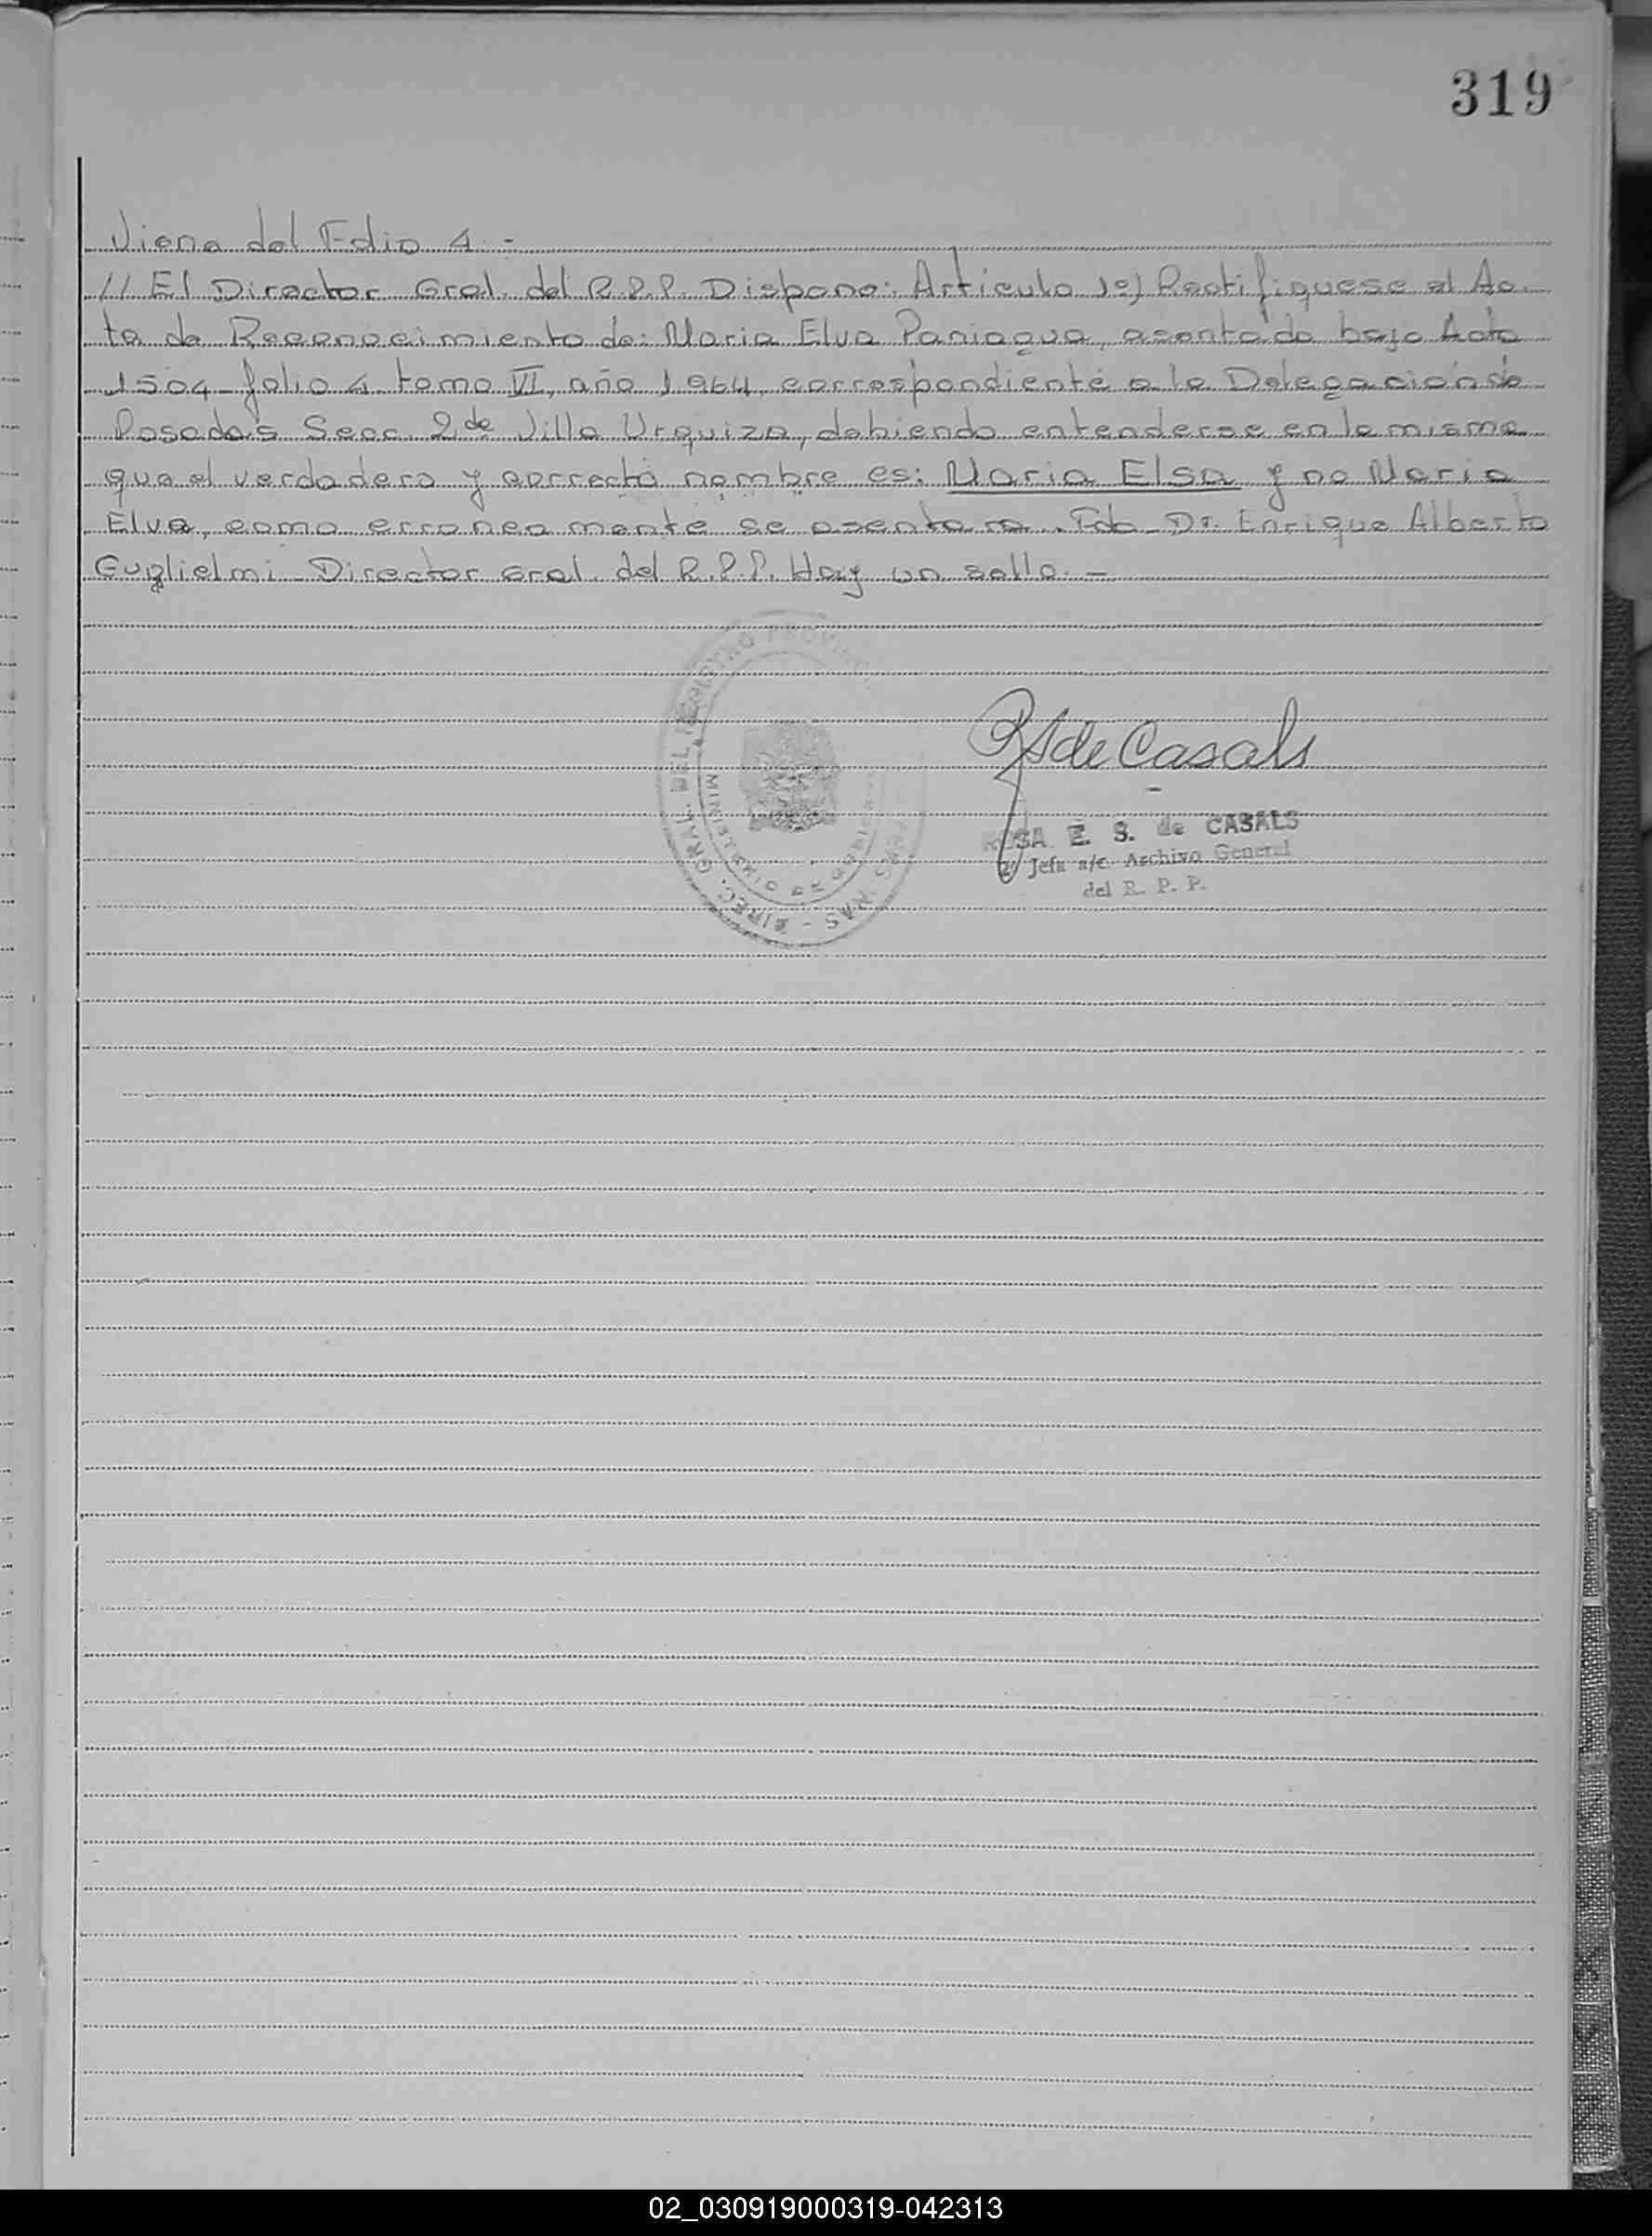 319
Viene del Folio 4 -
// El Director Gral. del R.P.P. Dispone: Articulo 1º) Rectifiquese el Ac-
ta de Reconocimiento de: Maria Elva Paniagua, asentada bajo Acta
1504 - folio 4 tomo VI, año 1964, correspondiente a la Delegación de
Posadas Secc. 2da Villa Urquiza, debiendo entenderse en la misma
que el verdadero y correcto nombre es: Maria Elsa y no Maria
Elva, como erroneamente se asentara. Fdo - Dr. Enrique Alberto
Guglielmi - Director Gral. del R.P.P. Hay un sello. -
DIREC. GRAL. DEL REGISTRO
MINISTERIO DE
RS de Casals
ROSA E. S. de CASALS
Jefa a/c. Archivo General
del R. P. P.
02_030919000319-042313